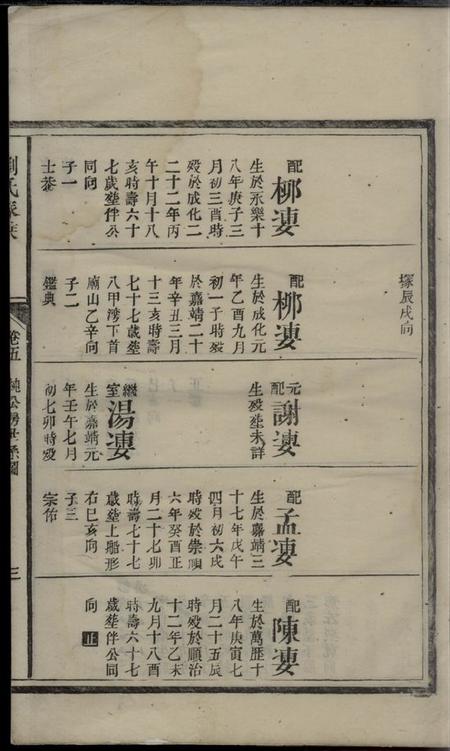 塚辰戌向
配柳凄
生於永樂十
八年庚子三
月初三酉時
歿於成化二
二十二年丙
午十月十八
亥時壽六十
七歲塟伴公
同向
子一
士恭
配柳凄
生於成化元
年乙酉九月
初一子時歿
於嘉靖二十
年辛丑三月
十三亥時壽
七十七歲塟
八甲湾下首
廟山乙辛向
子二
鑑典
元配謝凄
生歿塟未詳
繼室湯凄
生於嘉靖元
年壬午七月
初七卯時歿
配孟凄
生於嘉靖三
十七年戊午
四月初六戌
時歿於崇順
六年癸酉正
月二十七卯
時壽七十七
歲塟上船形
右巳亥向
子三
宗佑
配陳凄
生於萬歷十
八年庚寅七
月二十五辰
時歿於順治
十二年乙未
九月十八酉
時壽六十七
歲塟伴公同
向 正
劉氏家族
卷五
純公房世系圖
三